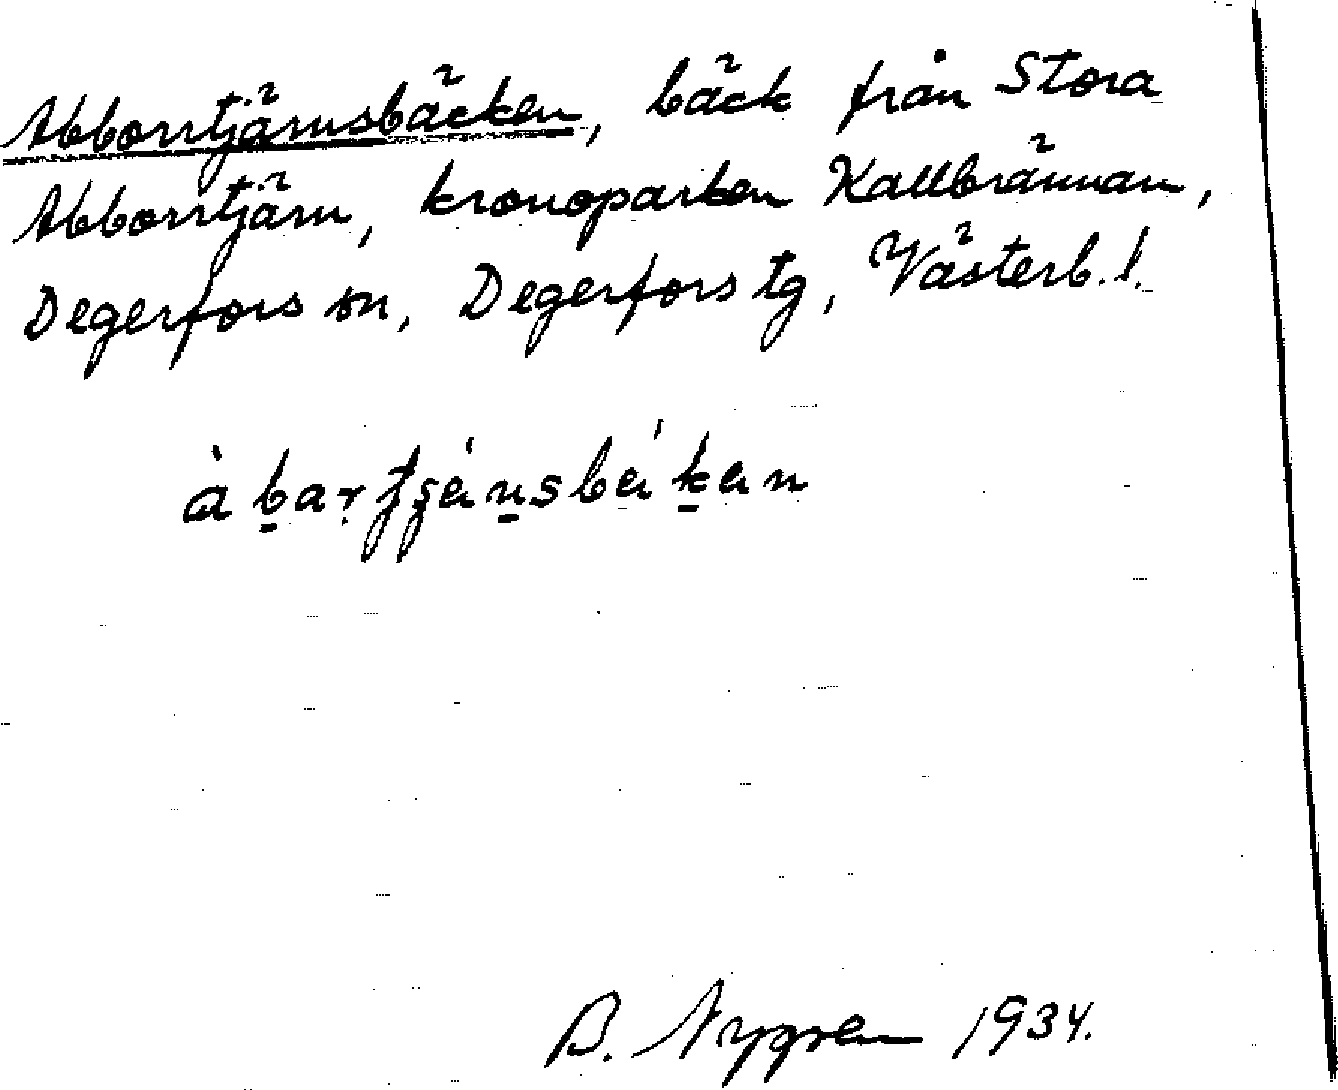 Abborrtjärnsbäcken, bäck från Stora
Abborrtjärn, kronoparken Kallbrännan,
Degerfors sn, Degerfors tg, Västerb. l.
B. Nygren 1934.